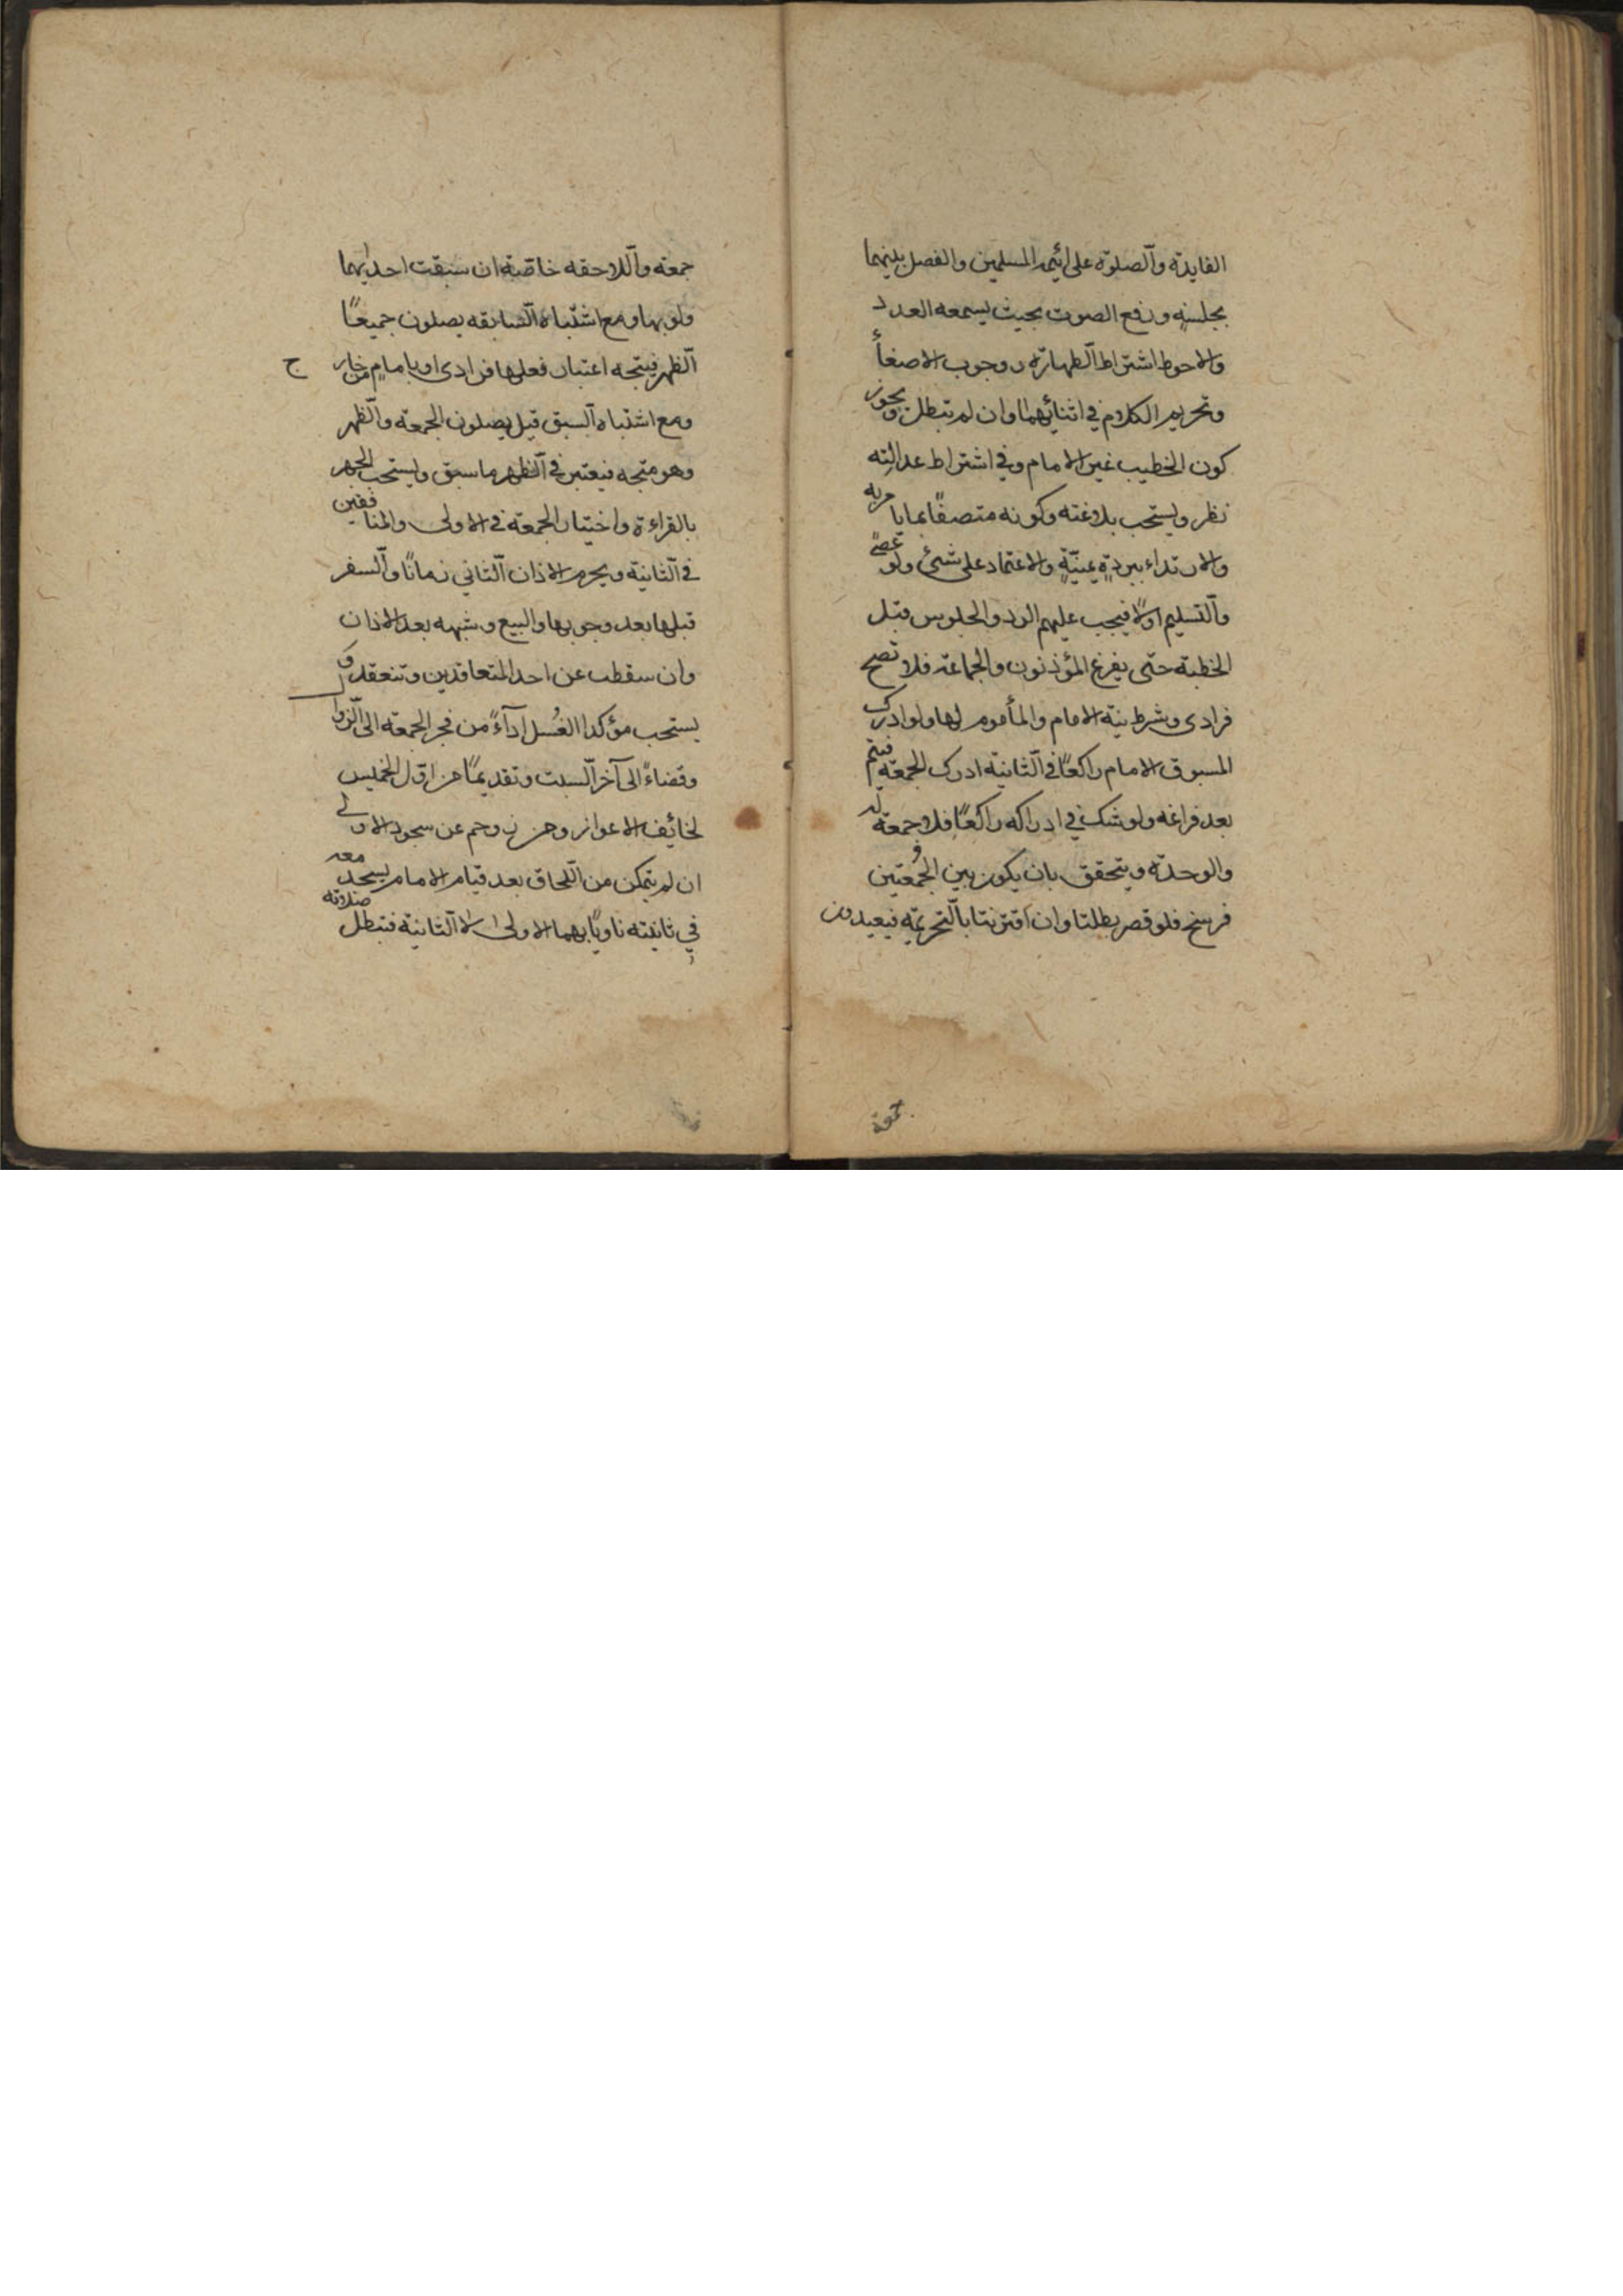 الفايدة والصلوة على ائمة المسلمين والفصل بينهما
بجلسةٍ ورفع الصوت بحيث يسمعه العدد
والاحوط اشتراط الطهارة ووجوب الاصغأ
وتحريم الكلام في اثنائهما وان لم تبطل ويجوز
كون الخطيب غير الامام وفي اشتراط عدالته
نظر ويستحب بلاغته وكونه متصفًا بما يامر به
والارتداء ببردةٍ يمنيّةٍ والاعتماد على شئ ولو عصًى
والتسليم اولًا فيجب عليهم الرد والجلوس قبل
الخطبة حتى يفرغ المؤذنون والجماعة فلا تصح
فرادى وشرط نية الامام والمأموم لها ولو ادرك
المسبوق الامام راكعًا في الثانية ادرك الجمعة فيتم
بعد فراغه ولو شك في ادراكه راكعًا فلا جمعة له
والوحدة ويتحقق بان يكون بين الجُمُعتين
فرسخ فلو قصر بطلتا وان اقترنتا بالتحريمة فيعيدون
جمعة
جمعة واللاحقه خاصّة ان سبقت احديهما
ولو بها ومع اشتباه السابقه يصلون جميعًا
الظهر فيتجه اعتبار فعلها فرادى او بامامٍ من خارج
ومع اشتباه السبق قيل يصلون الجمعة والظهر
وهو متجه فيعتبر في الظهر ما سبق ويستحب الجهر
بالقراءة واختيار الجمعة في الاولى والمنافقين
في الثانية ويحرم الاذان الثاني زمانًا والسفر
قبلها بعد وجوبها والبيع وشبهه بعد الاذان
وان سقطت عن احد المتعاقدين وتنعقد و
يستحب مؤكدا الغُسل اداءً من فجر الجمعة الى الزوال
وقضاءً الى آخر السبت وتقديمًا من اول الخميس
لخائف الاعواز ومن زوحم عن سجود الاولى
ان لم يتمكن من اللحاق بعد قيام الامام يسجد معه
في ثانيته ناويًا بهما الاولى لا الثانية فتبطل صلاته